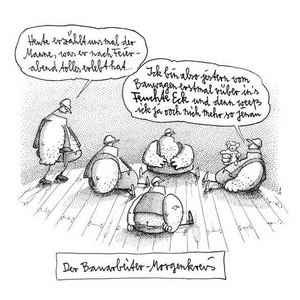 Heute erzählt uns mal der
Manne, was er nach Feier-
abend tolles erlebt hat.
Ick bin also jestern vom
Bauwagen erstmal rüber in's
Feuchte Eck und denn weeß
ick ja ooch nich mehr so jenau
Der Bauarbeiter-Morgenkreis